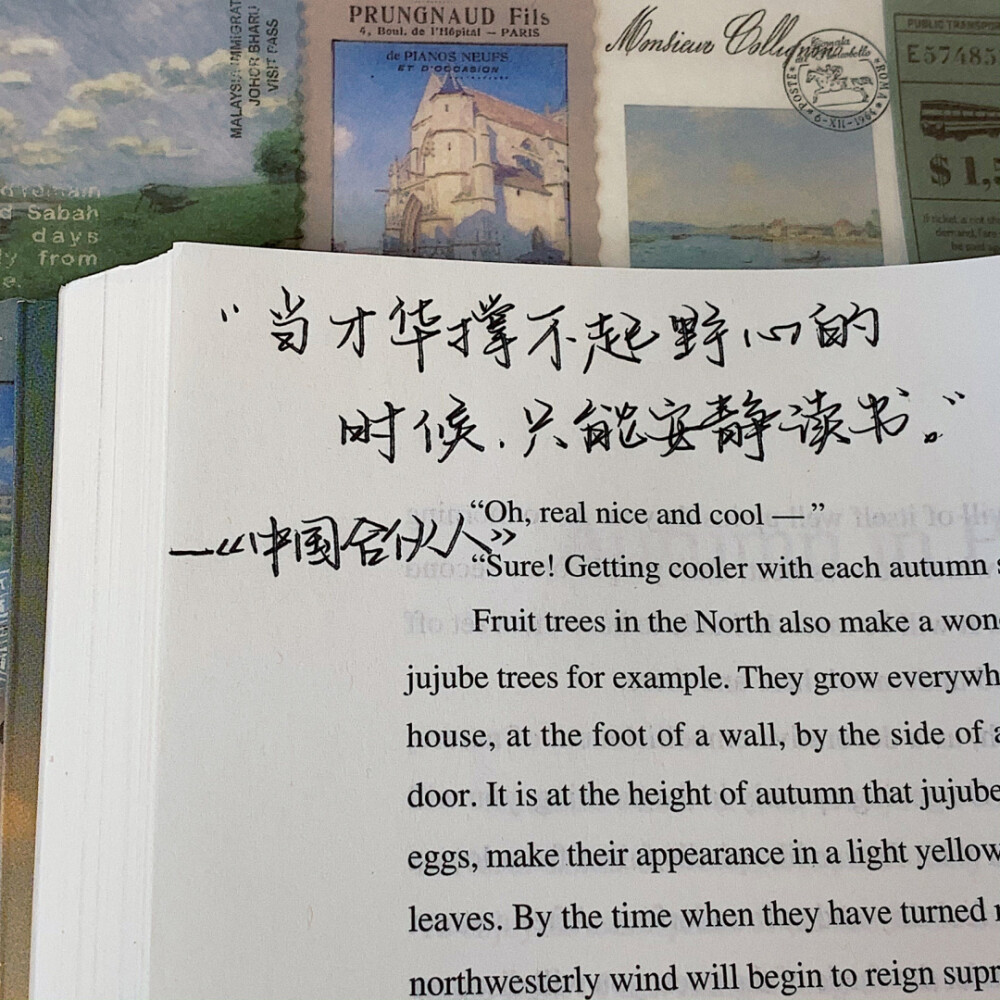 MALAYSIA IMMIGRAT
JOHOR BHARU
VISIT PASS
d Sabah
days
y from
e.
PRUNGNAUD Fils
4, Boul. de l'Hôpital — PARIS
de PIANOS NEUFS
ET D'OCCASION
Monsieur Collignon
POSTE ROMA 9-XII-1961
PUBLIC TRANSPO
E57485
$1,
“当才华撑不起野心的
时候,只能安静读书。”
—《中国合伙人》
“Oh, real nice and cool —”
“Sure! Getting cooler with each autumn
Fruit trees in the North also make a won
jujube trees for example. They grow everywh
house, at the foot of a wall, by the side of a
door. It is at the height of autumn that jujube
eggs, make their appearance in a light yellow
leaves. By the time when they have turned
northwesterly wind will begin to reign supr